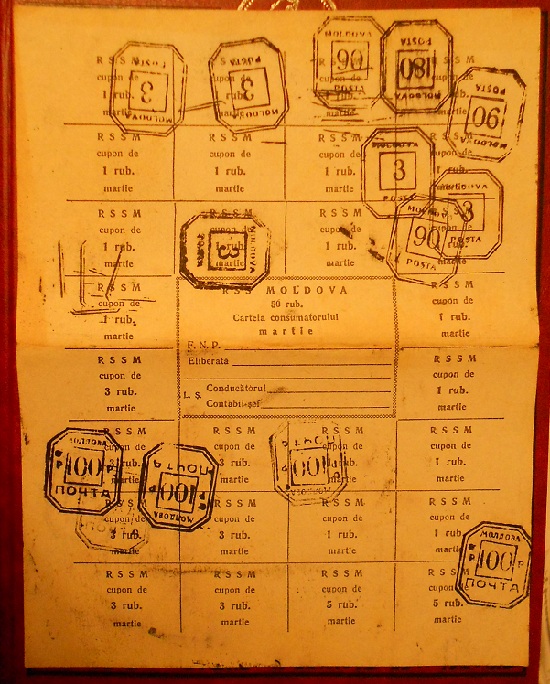 R S S M R S S M R S S M R S S M
cupon de cupon de cupon de cupon de
1 rub. 1 rub. 1 rub. 1 rub.
martie martie martie martie
R S S M R S S M R S S M R S S M
cupon de cupon de cupon de cupon de
1 rub. 1 rub. 1 rub. 1 rub.
martie martie martie martie
R S S M R S S M R S S M R S S M
cupon de cupon de cupon de cupon de
1 rub. 1 rub. 1 rub. 1 rub.
martie martie martie martie
R S S M
cupon de
1 rub.
martie
RSS MOLDOVA
50 rub.
Cartela consumatorului
martie
F. N. P.
Eliberată
L. Ș. Conducătorul
Contabil-șef
R S S M
cupon de
1 rub.
martie
R S S M
cupon de
3 rub.
martie
R S S M
cupon de
1 rub.
martie
R S S M R S S M R S S M R S S M
cupon de cupon de cupon de cupon de
3 rub. 3 rub. 1 rub. 1 rub.
martie martie martie martie
R S S M R S S M R S S M R S S M
cupon de cupon de cupon de cupon de
3 rub. 3 rub. 1 rub. 1 rub.
martie martie martie martie
R S S M R S S M R S S M R S S M
cupon de cupon de cupon de cupon de
3 rub. 3 rub. 5 rub. 5 rub.
martie martie martie martie
POSTA
3
MOLDOVA
POSTA
3
MOLDOVA
MOLDOVA
90
POSTA
POSTA
180
MOLDOVA
POSTA
90
MOLDOVA
MOLDOVA
3
POSTA
MOLDOVA
3
POSTA
MOLDOVA
90
POSTA
MOLDOVA
3
POSTA
MOLDOVA
100
ПОЧТА
ПОЧТА
100
MOLDOVA
ПОЧТА
100
MOLDOVA
ПОЧТА
MOLDOVA
100
ПОЧТА